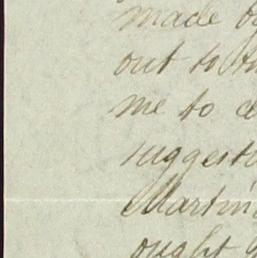 made
out to
me to
suggest
Martin
ought